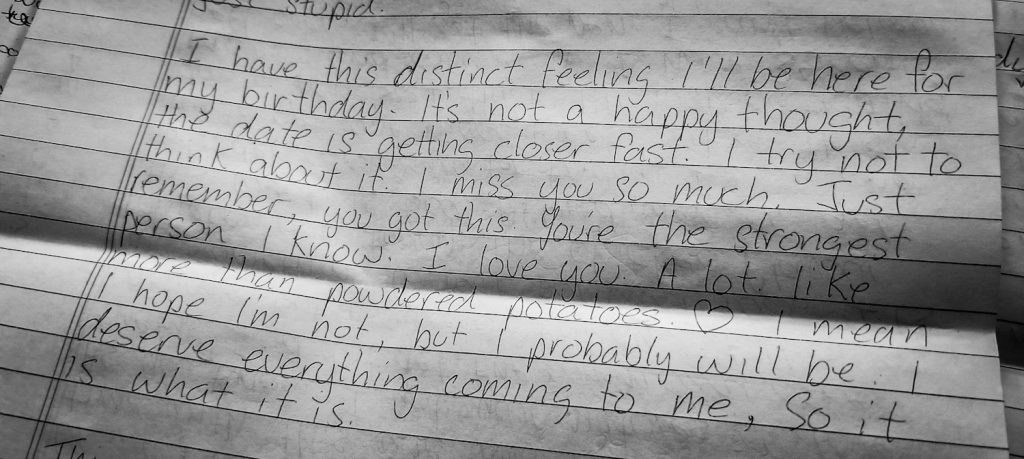 Just stupid.
I have this distinct feeling I'll be here for
my birthday. It's not a happy thought,
the date is getting closer fast. I try not to
think about it. I miss you so much. Just
remember, you got this. You're the strongest
person I know. I love you. A lot. like
more than powdered potatoes. ♡ I mean
I hope I'm not, but I probably will be. I
deserve everything coming to me, So it
is what it is.